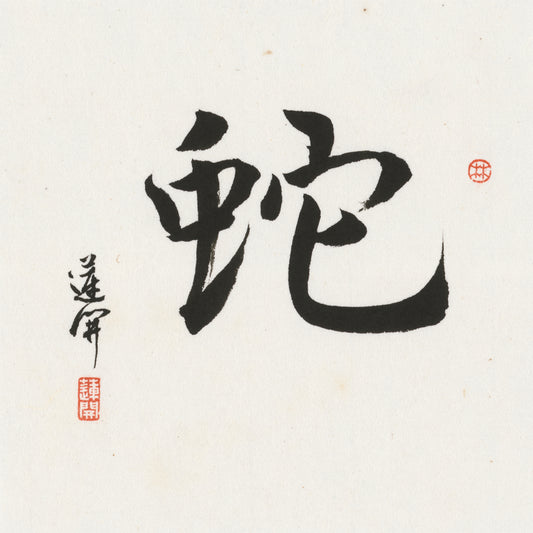 林
蛇
蓮開
蓮開